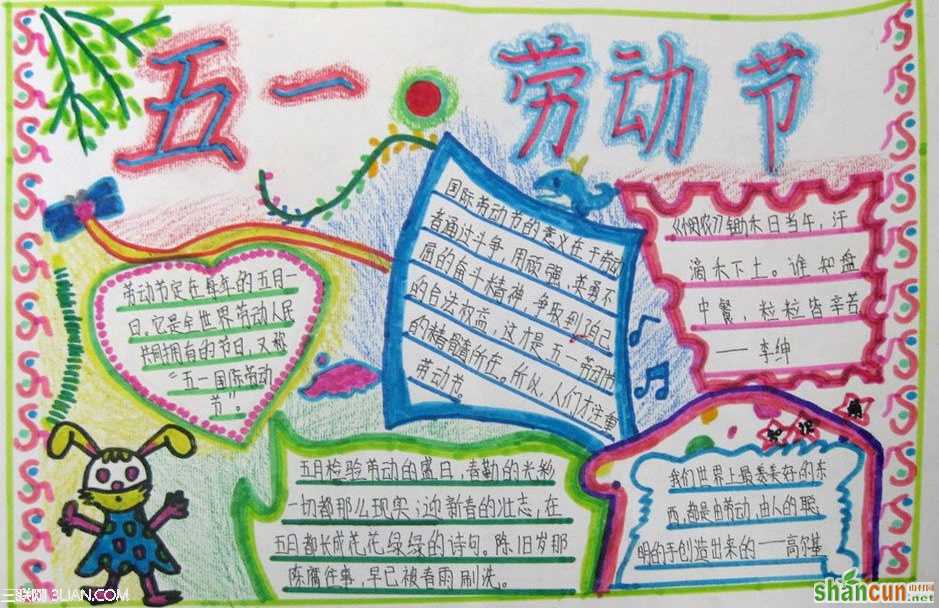 五一 劳动节
劳动节定在每年的五月一
日。它是全世界劳动人民
共同拥有的节日,又称
“五一国际劳动
节”。
国际劳动节的意义在于劳动
者通过斗争,用顽强、英勇不
屈的奋斗精神,争取到了自己
的合法权益,这才是五一劳动节
的精髓所在。所以,人们才注重
劳动节。
《悯农》锄禾日当午,汗
滴禾下土。谁知盘
中餐,粒粒皆辛苦
——李绅
五月检验劳动的盛日,春勤的光彩
一切都那么现实;迎新春的壮志,在
五月都长成花花绿绿的诗句。陈旧岁那
陈腐往事,早已被春雨刷洗。
知识
我们世界上最美好的东
西,都是由劳动、由人的聪
明的手创造出来的——高尔基
三联网 3LIAN.COM
shancun 山村网
.net